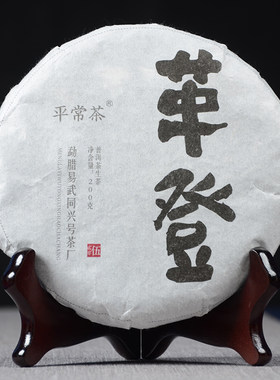 革登
平常茶®
普洱茶生茶
净含量:200克
勐腊易武同兴号茶厂
伍